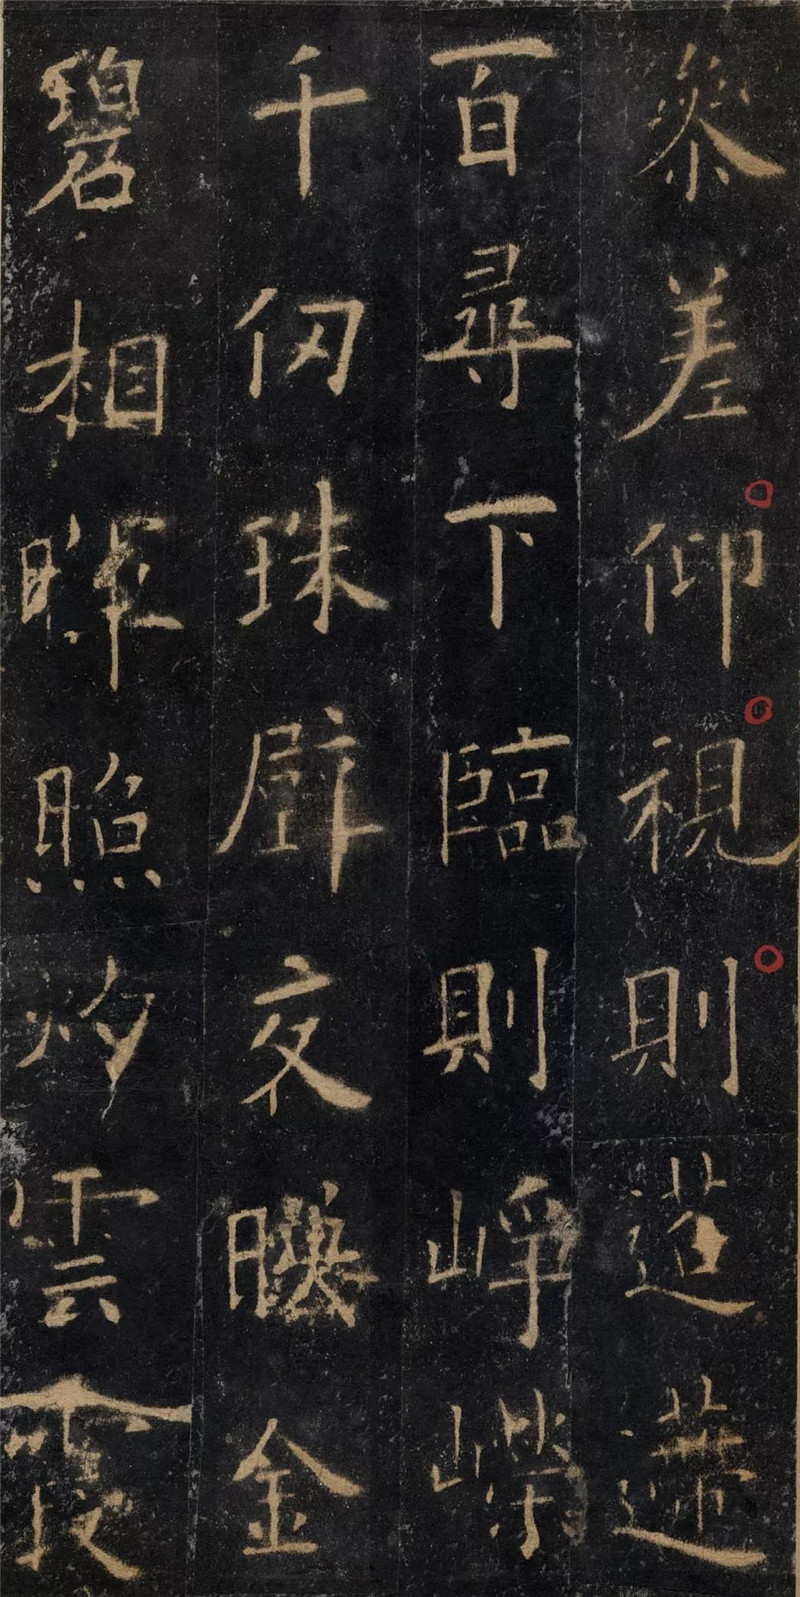 參差仰視則迢遰
百尋下臨則崢嶸
千仞珠璧交暎金
碧相暉照灼雲霞